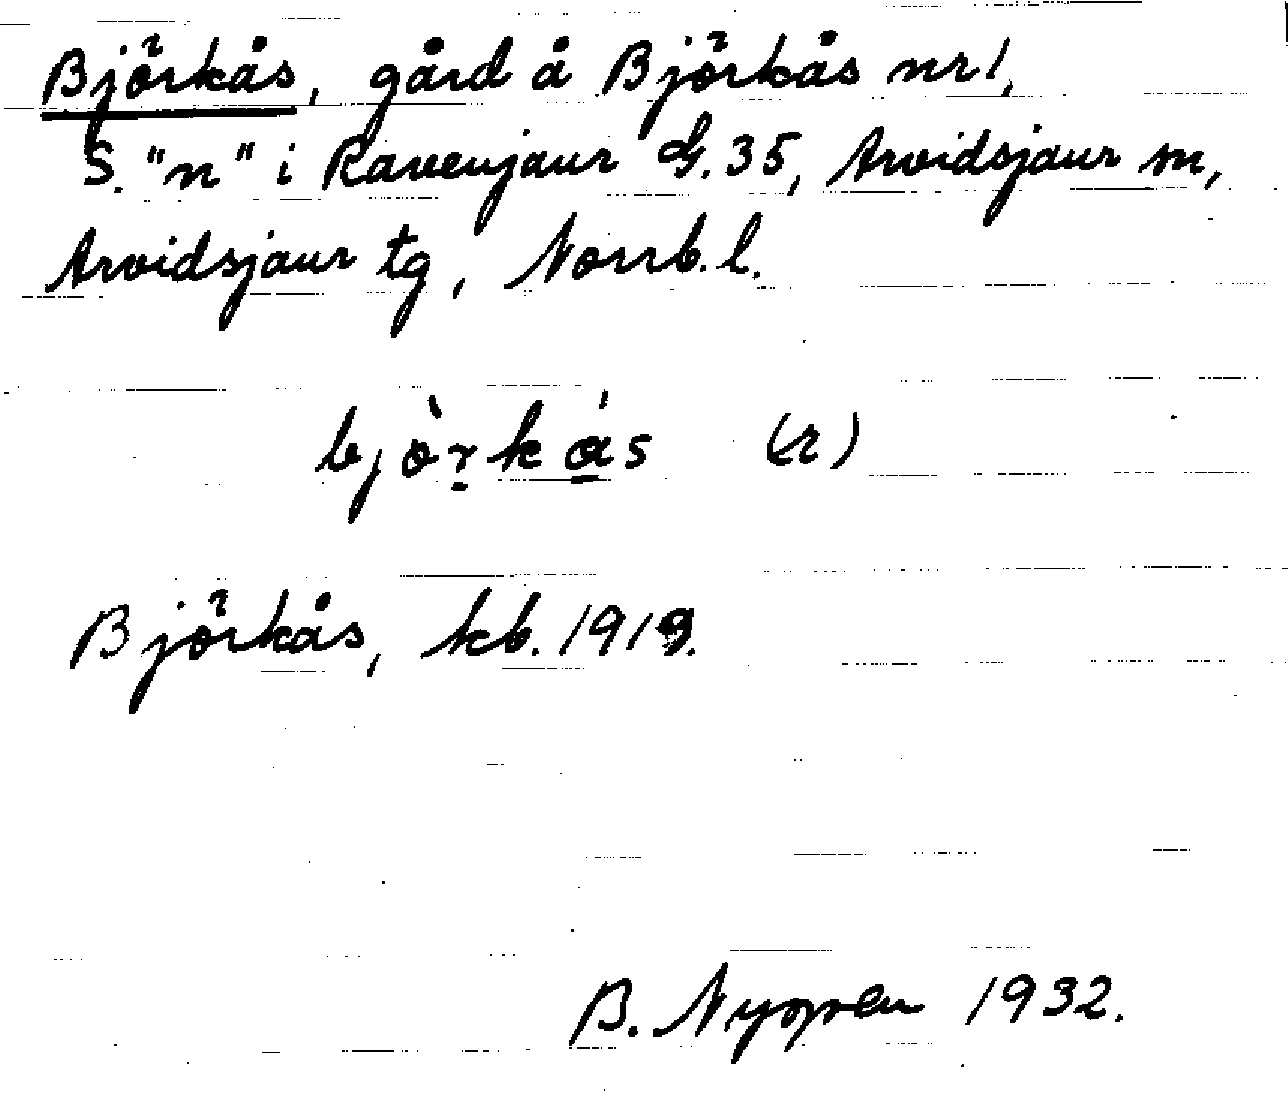 Björkås, gård å Björkås nr 1,
S. "n" i Ravenjaur G. 35, Arvidsjaur sn,
Arvidsjaur tg, Norrb. l.
bjò̀rkás (r)
Björkås, kb. 1919.
B. 1932.